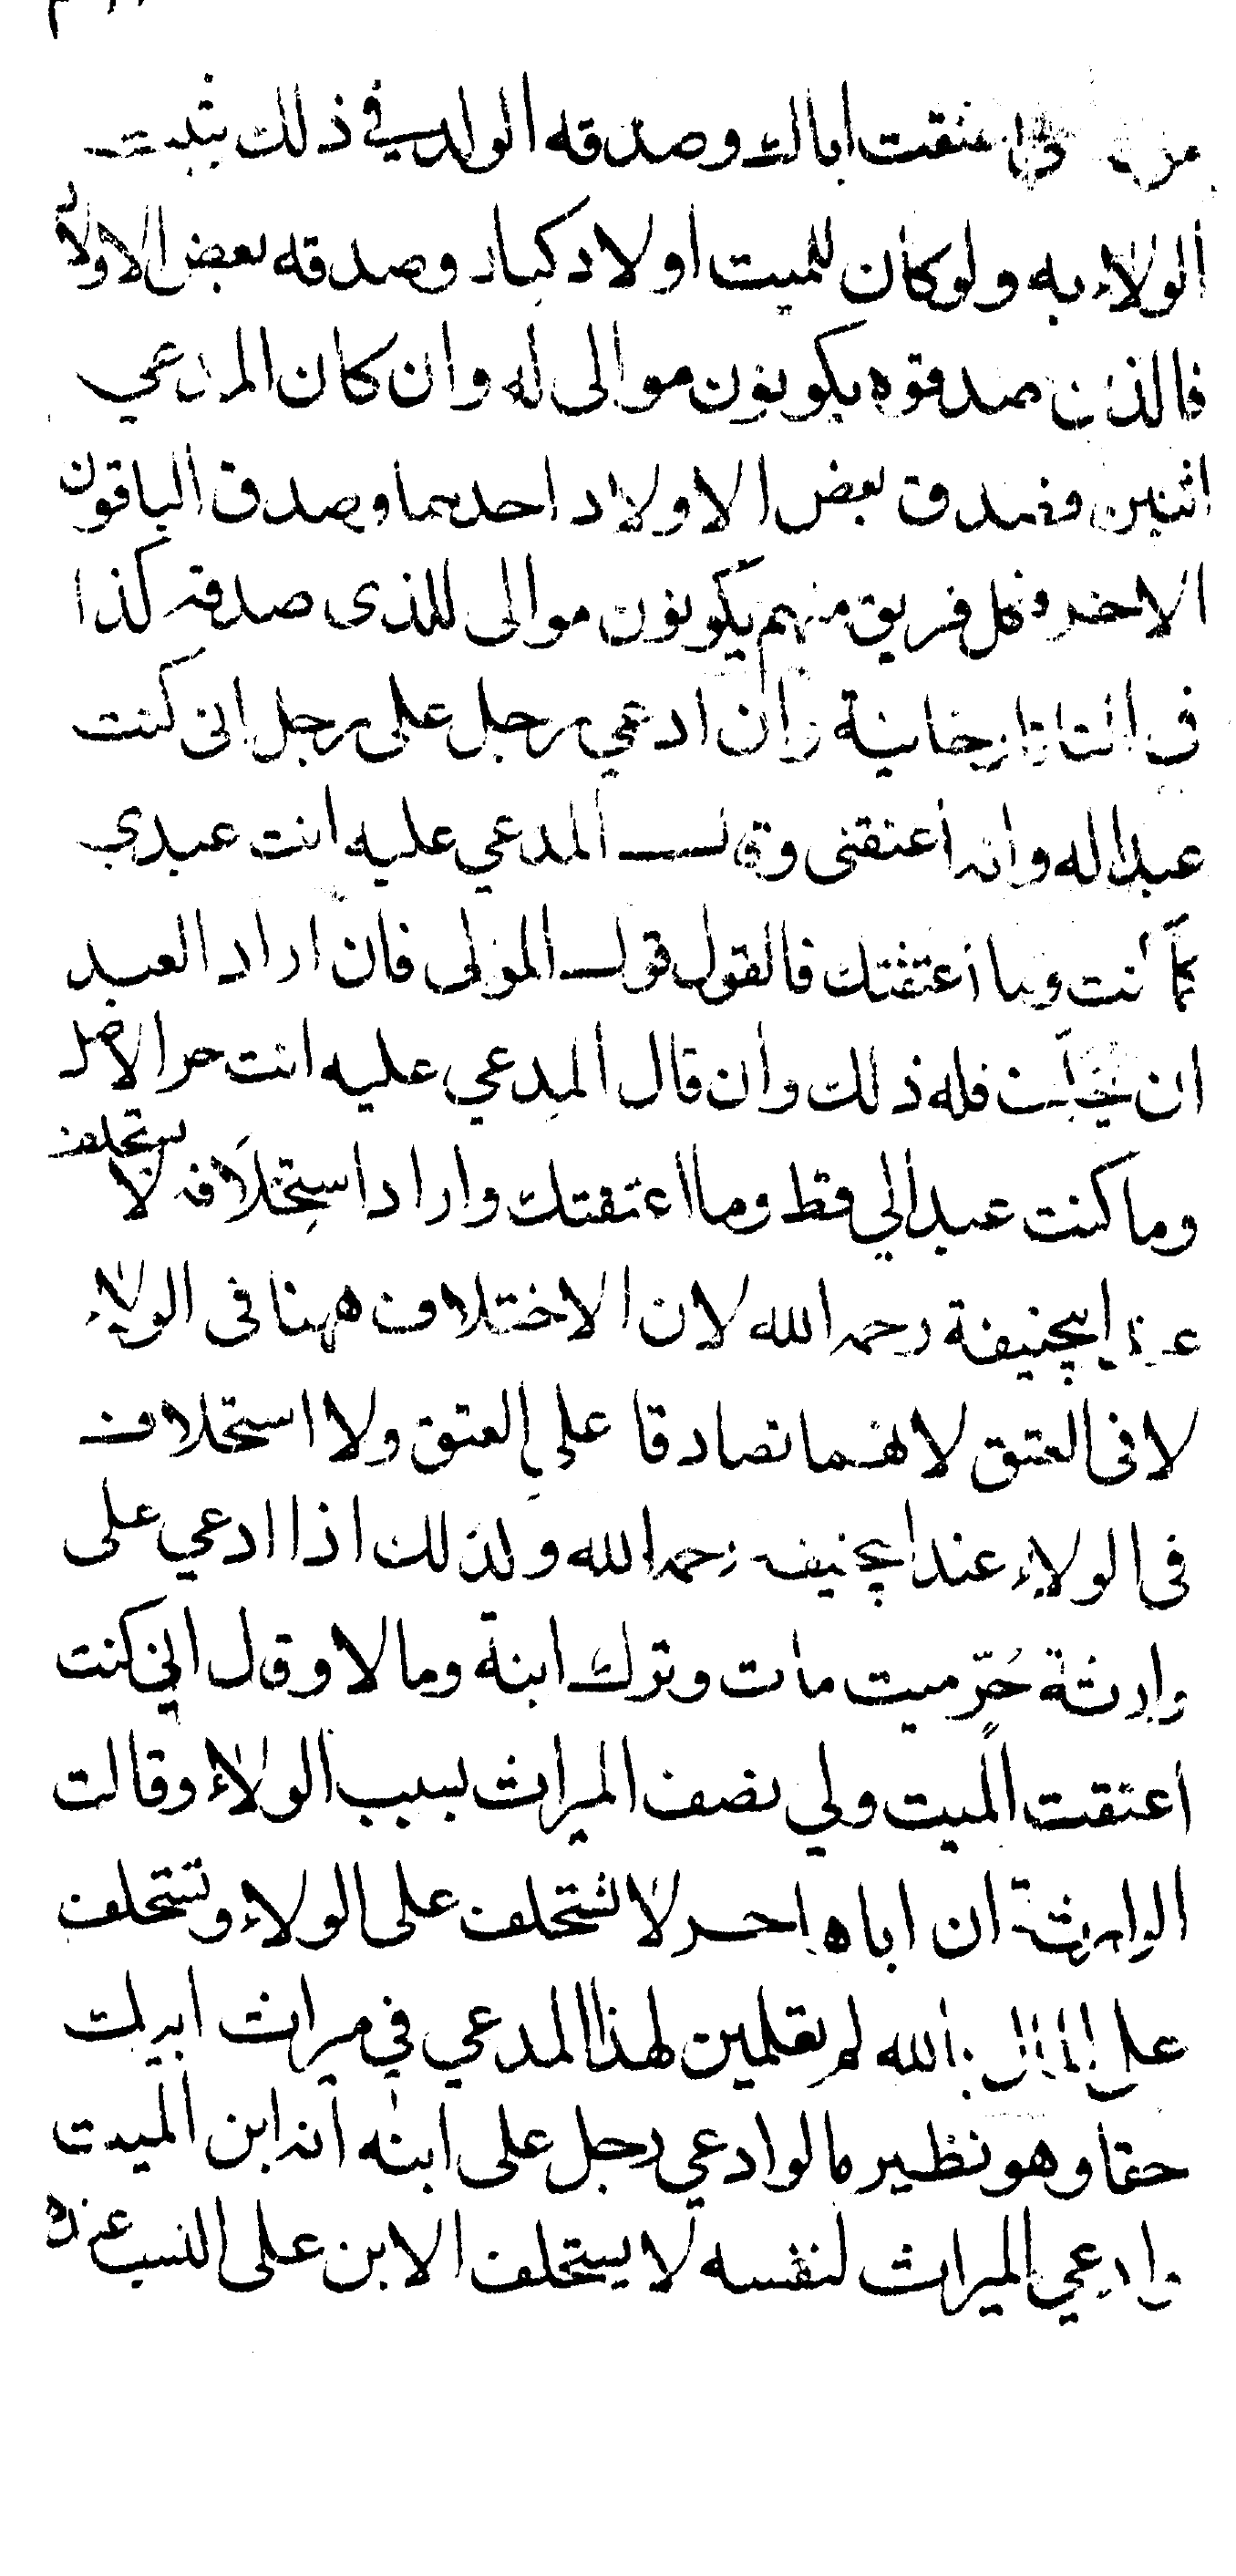 اعتقت اباك وصدقه الولد في ذلك يثبت
الولاء به ولو كان للميت اولاد كبار وصدقه بعض الاولاد
فالذين صدقوه يكونون موالي له وان كان المدعي
اثنين فصدق بعض الاولاد احدهما وصدق الباقون
الاخر فكل فريق منهم يكونون موالى للذى صدقه كذا
فى التاتارخانية وان ادعي رجل على رجل انى كنت
عبدا له وانه اعتقنى وقال المدعي عليه انت عبدي
كما كنت وما اعتقتك فالقول قول المولى فان اراد العبد
ان فله ذلك وان قال المدعي عليه انت حر الاصل
وما كنت عبدا لي قط وما اعتقتك واراد استحلافه لا يستحلف
عند ابيحنيفة رحمه الله لان الاختلاف ههنا فى الولاء
لا فى العتق لانهما تصادقا على العتق ولا استحلاف
فى الولاء عند ابيحنيفه رحمه الله وكذلك اذا ادعي على
وارثة حرّ ميت مات وترك ابنة ومالا وقال اني كنت
اعتقت الميت ولي نصف الميراث بسبب الولاء وقالت
الوارثة ان اباها حر لا تستحلف على الولاء وتستحلف
على المال بالله لم تعلمين لهذا المدعي في ميراث ابيك
حقا وهو نظير مالو ادعي رجل على ابنه انه ابن الميت
وادعي الميراث لنفسه لا يستحلف الابن على النسب عنده